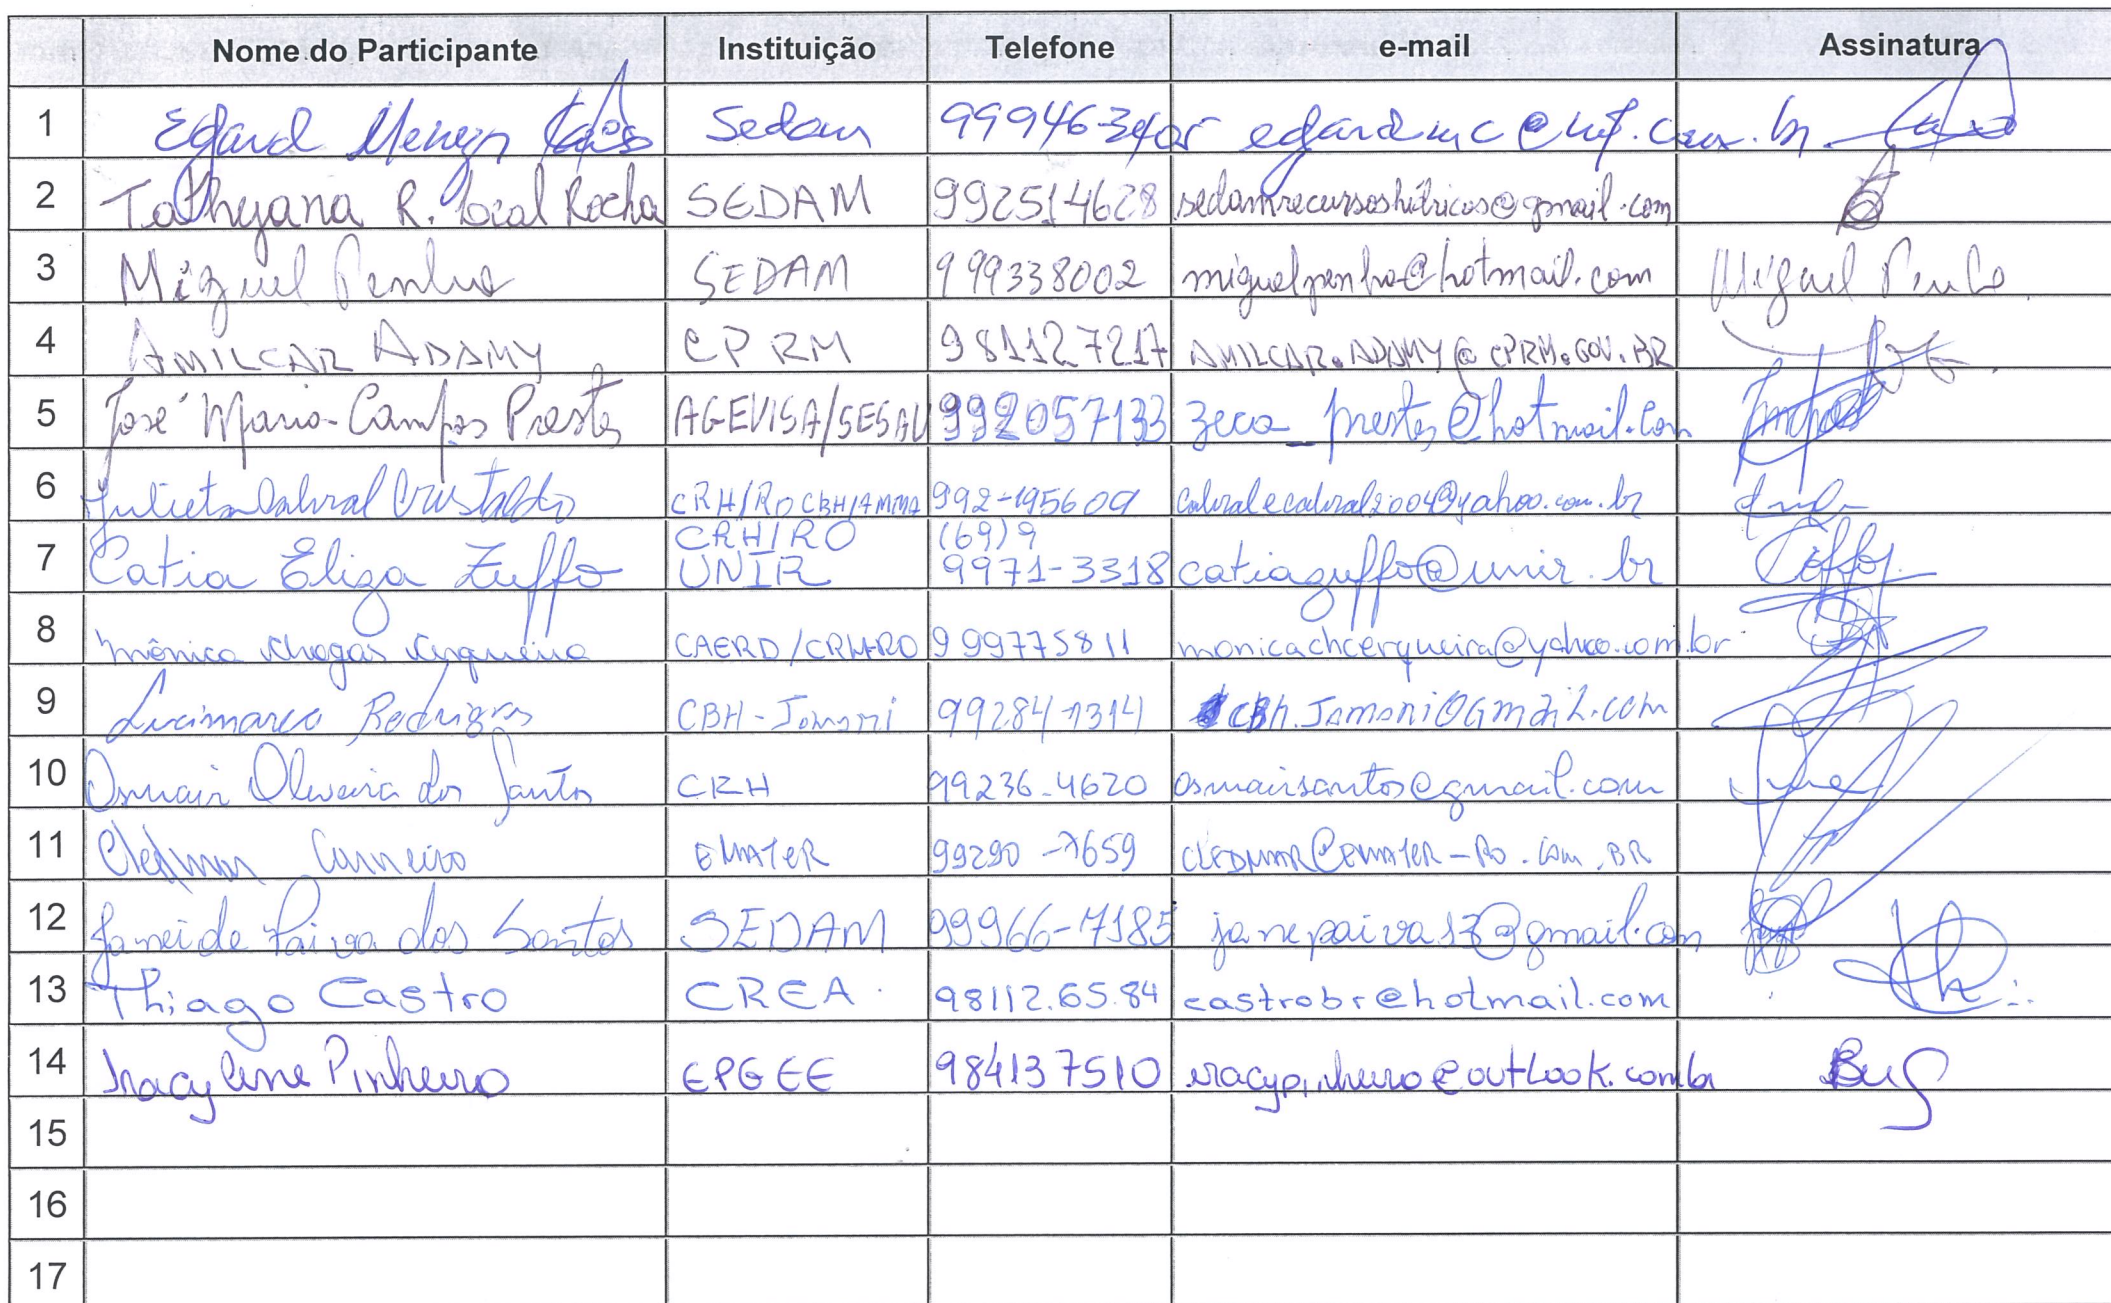 Nome do Participante Instituição Telefone e-mail Assinatura
1 Edgard Menezes Sedam
2 Tathyana R. Rocha SEDAM 992514628 sedamrecursoshidricos@gmail.com
3 Miguel Penha SEDAM 999338002 miguelpenha@hotmail.com Miguel Penha
4 AMILCAR ADAMY CPRM 981127217 AMILCAR.ADAMY@CPRM.GOV.BR
5 José Maria Campos Prestes AGEVISA/SESAU 992057133 zeca_prestes@hotmail.com
6 Julieta Cabral Cristaldo CRH/RO CBH/AMMA 992-195609 cabralecabral2004@yahoo.com.br
CRH/RO (69)9
7 Catia Eliza Zuffo UNIR 9971-3318 catiazuffo@unir.br
8 Mônica Chagas Cerqueira CAERD/CRH-RO 999775811 monicachcerqueira@yahoo.com.br
9 Lucimarco Rodrigues CBH-Jamari 99284-1314 CBh.Jamari@Gmail.com
10 Osmair Oliveira dos Santos CRH 99236-4620 osmairsantos@gmail.com
11 Cledmar Carneiro EMATER 99290-7659 CLEDMAR@EMATER-RO.COM.BR
12 Janeide Paiva dos Santos SEDAM 99966-7185 janepaiva13@gmail.com
13 Thiago Castro CREA 98112.65.84 castrobr@hotmail.com
14 Iracylene Pinheiro EPGEE 984137510 iracypinheiro@outlook.com.br
15
16
17